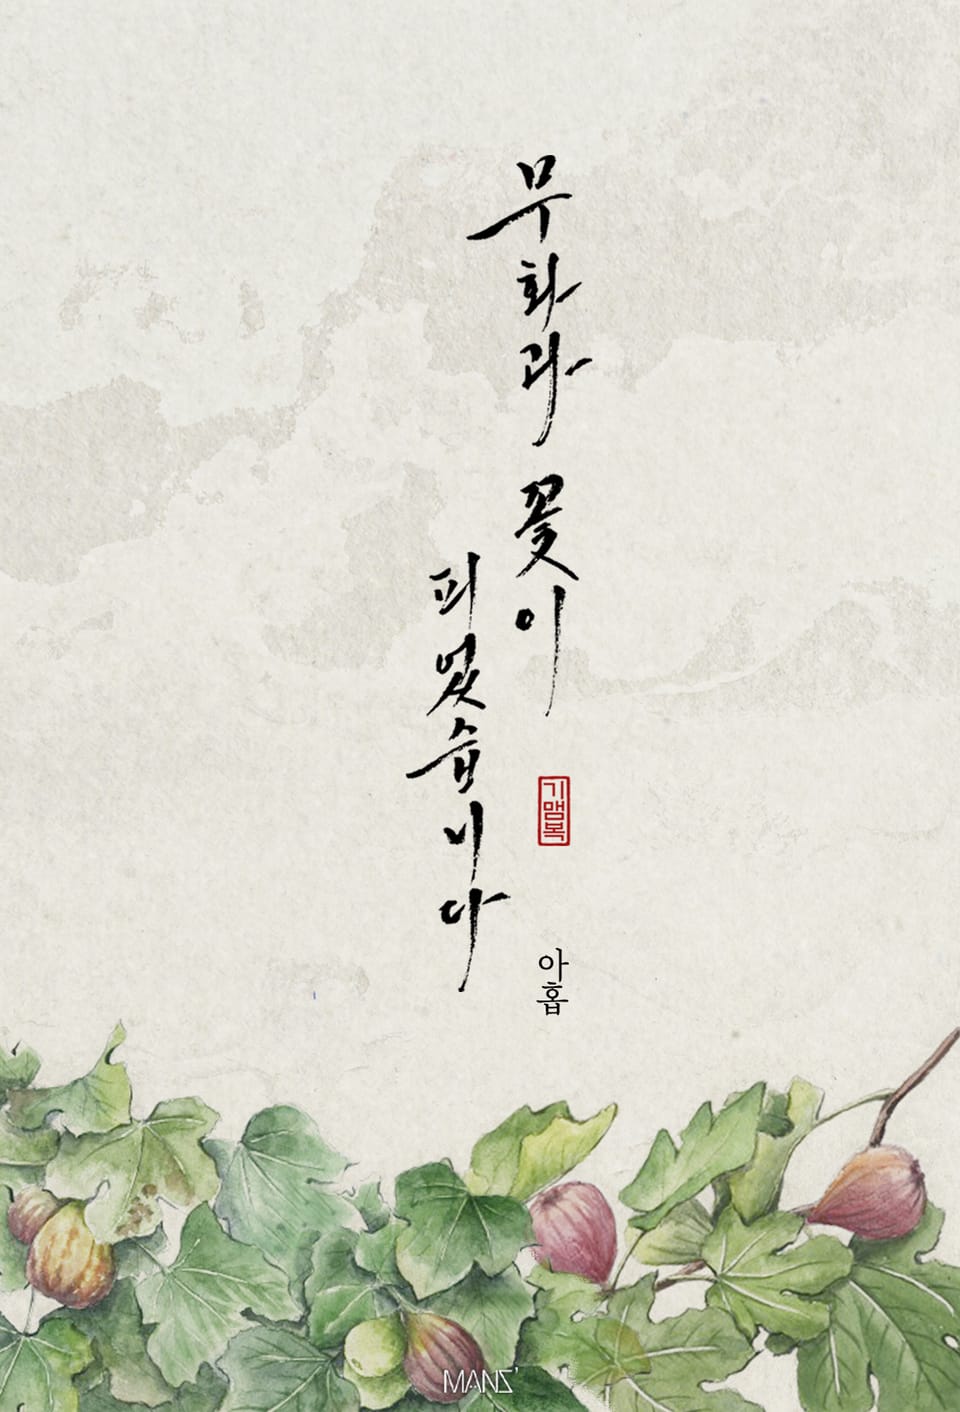 무화과 꽃이
피었습니다
기맴복
아홉
MANZ'